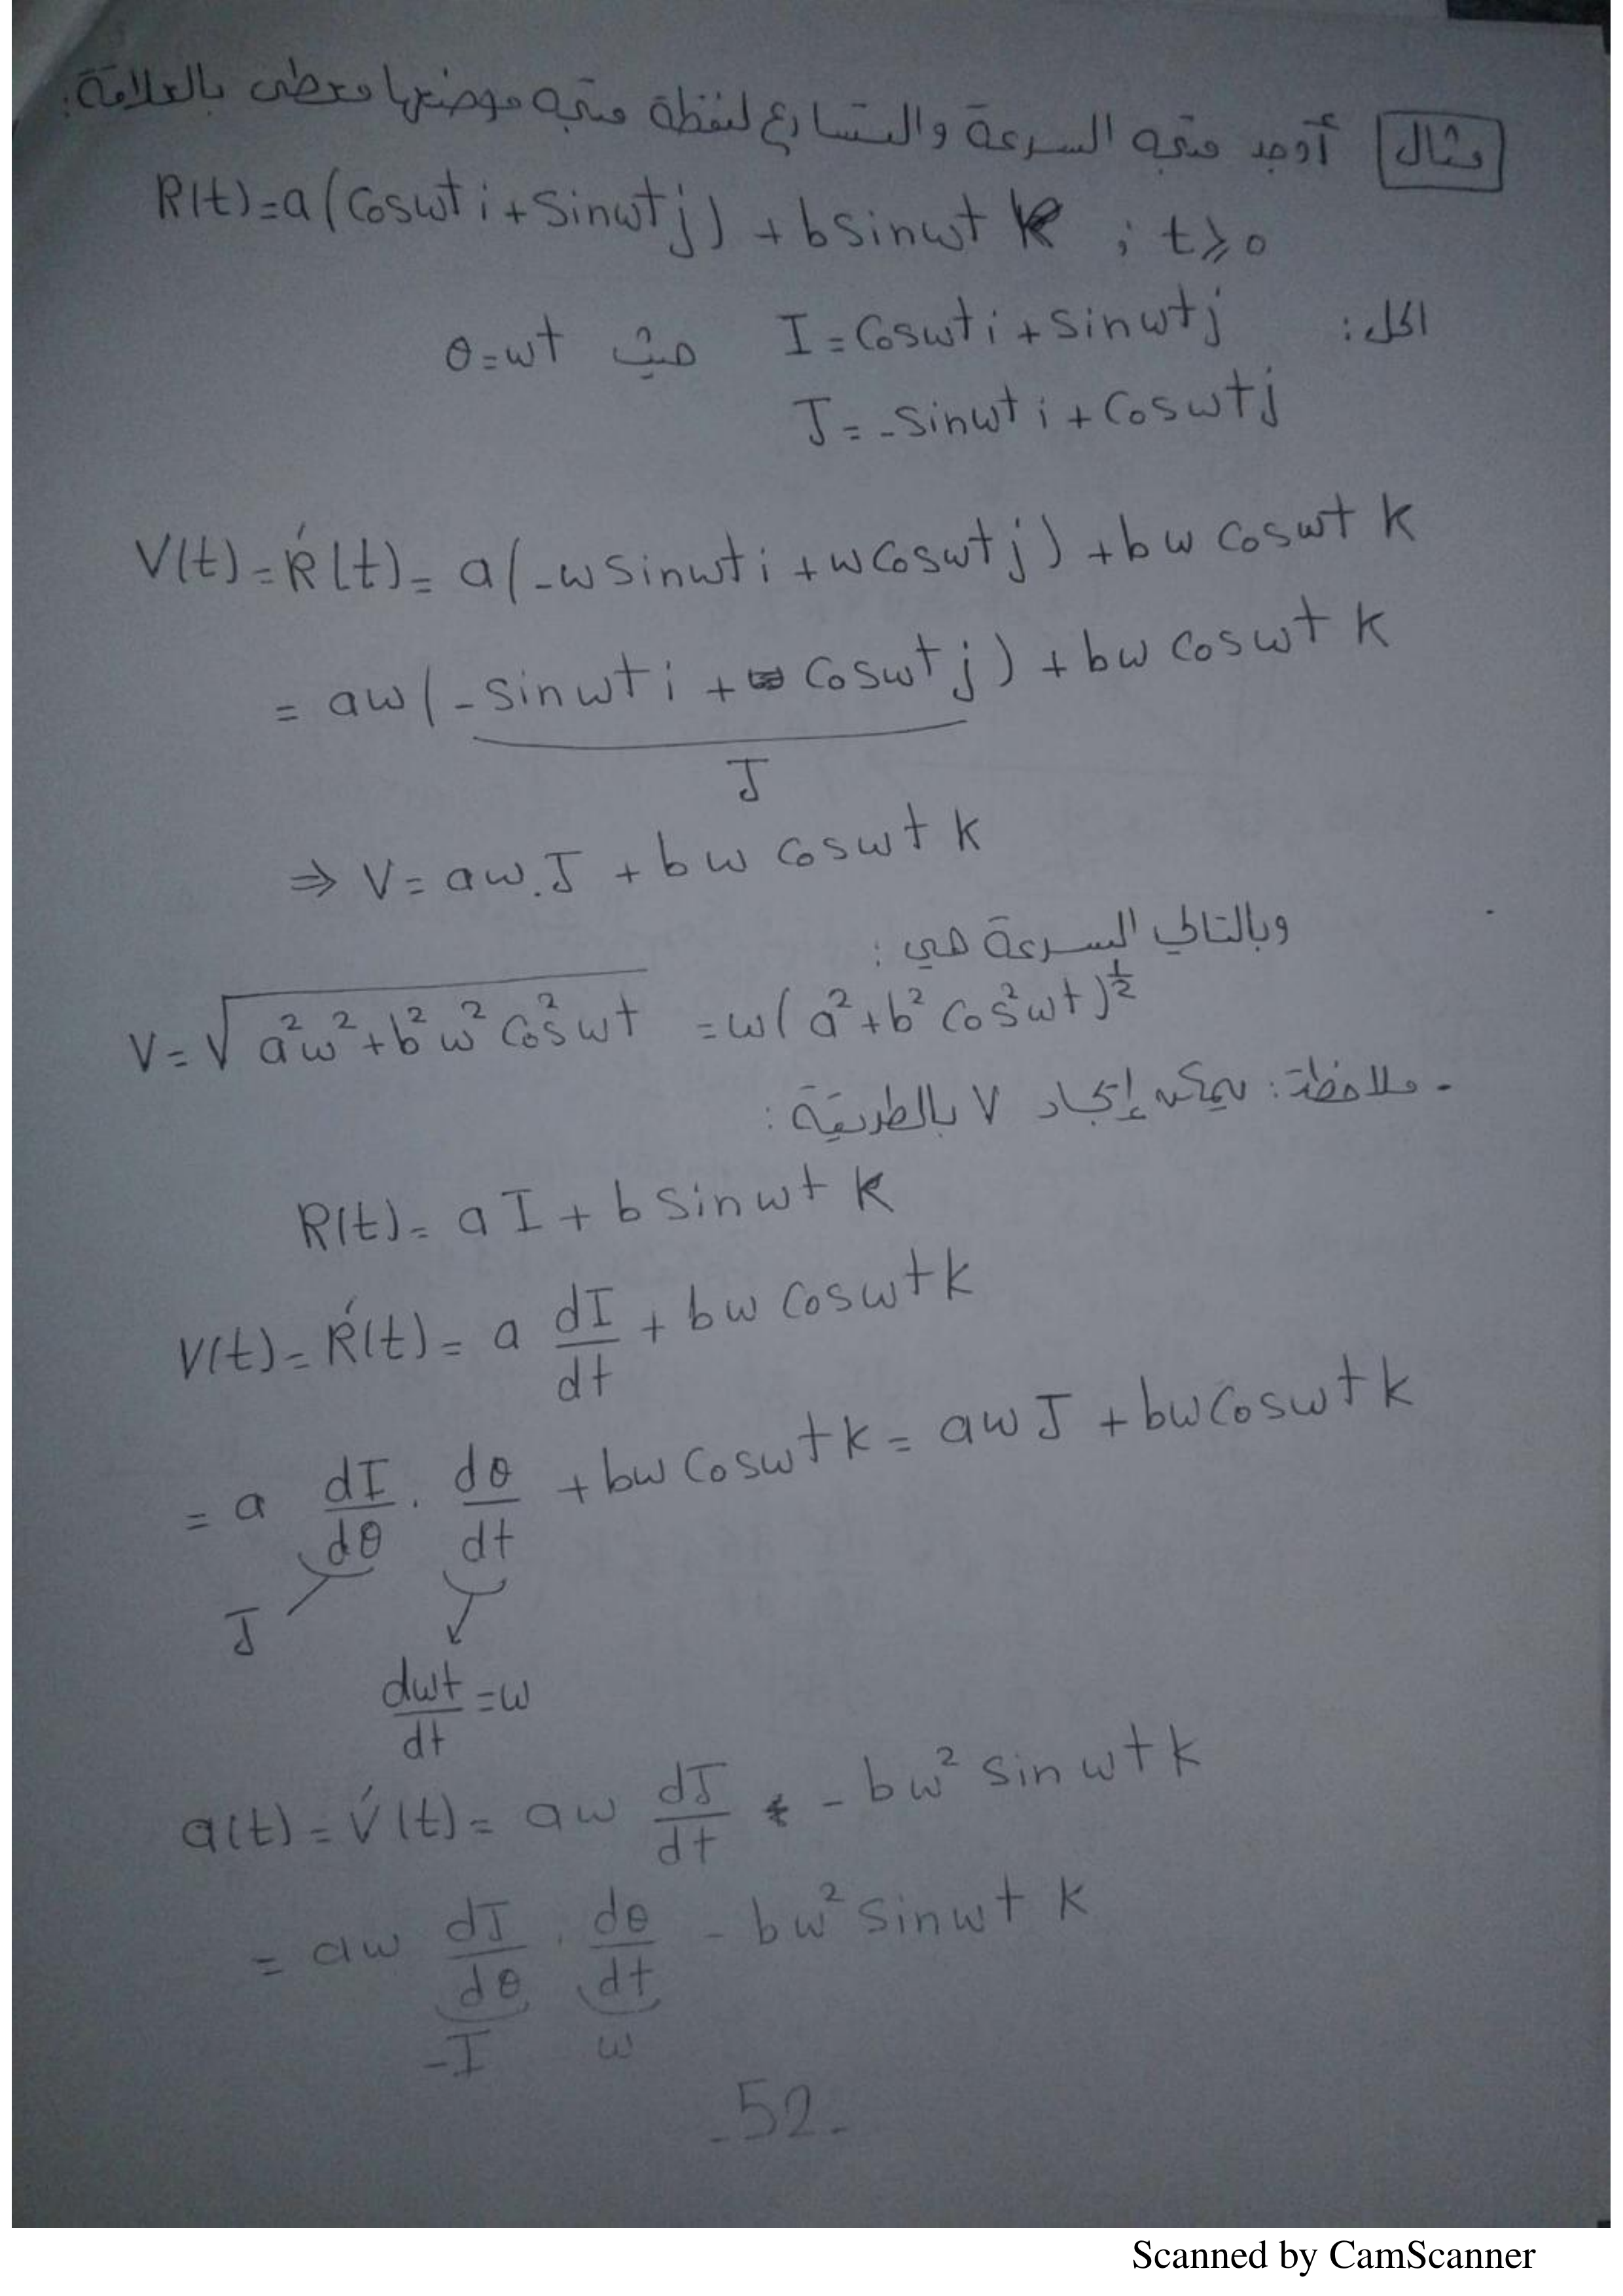 مثال أوجد متجه السرعة والتسارع لنقطة متجه موضعها معطى بالعلاقة:
R(t)=a(cosωt i+sinωt j)+b sinωt k ; t≥0
الحل: I=cosωt i+sinωt j حيث θ=ωt
J=-sinωt i+cosωt j
V(t)=R'(t)=a(-ω sinωt i+ω cosωt j)+bω cosωt k
=aω(-sinωt i+cosωt j)+bω cosωt k
J
⇒ V=aω.J+bω cosωt k
وبالتالي السرعة هي:
V=√(a²ω²+b²ω² cos²ωt) =ω(a²+b² cos²ωt)^½
- ملاحظة: يمكن إيجاد V بالطريقة:
R(t)=a I+b sinωt k
V(t)=R'(t)=a dI/dt+bω cosωt k
=a dI/dθ . dθ/dt+bω cosωt k=aω J+bω cosωt k
J
dωt/dt=ω
a(t)=V'(t)=aω dJ/dt -bω² sinωt k
=aω dJ/dθ . dθ/dt -bω² sinωt k
-I ω
-52-
Scanned by CamScanner